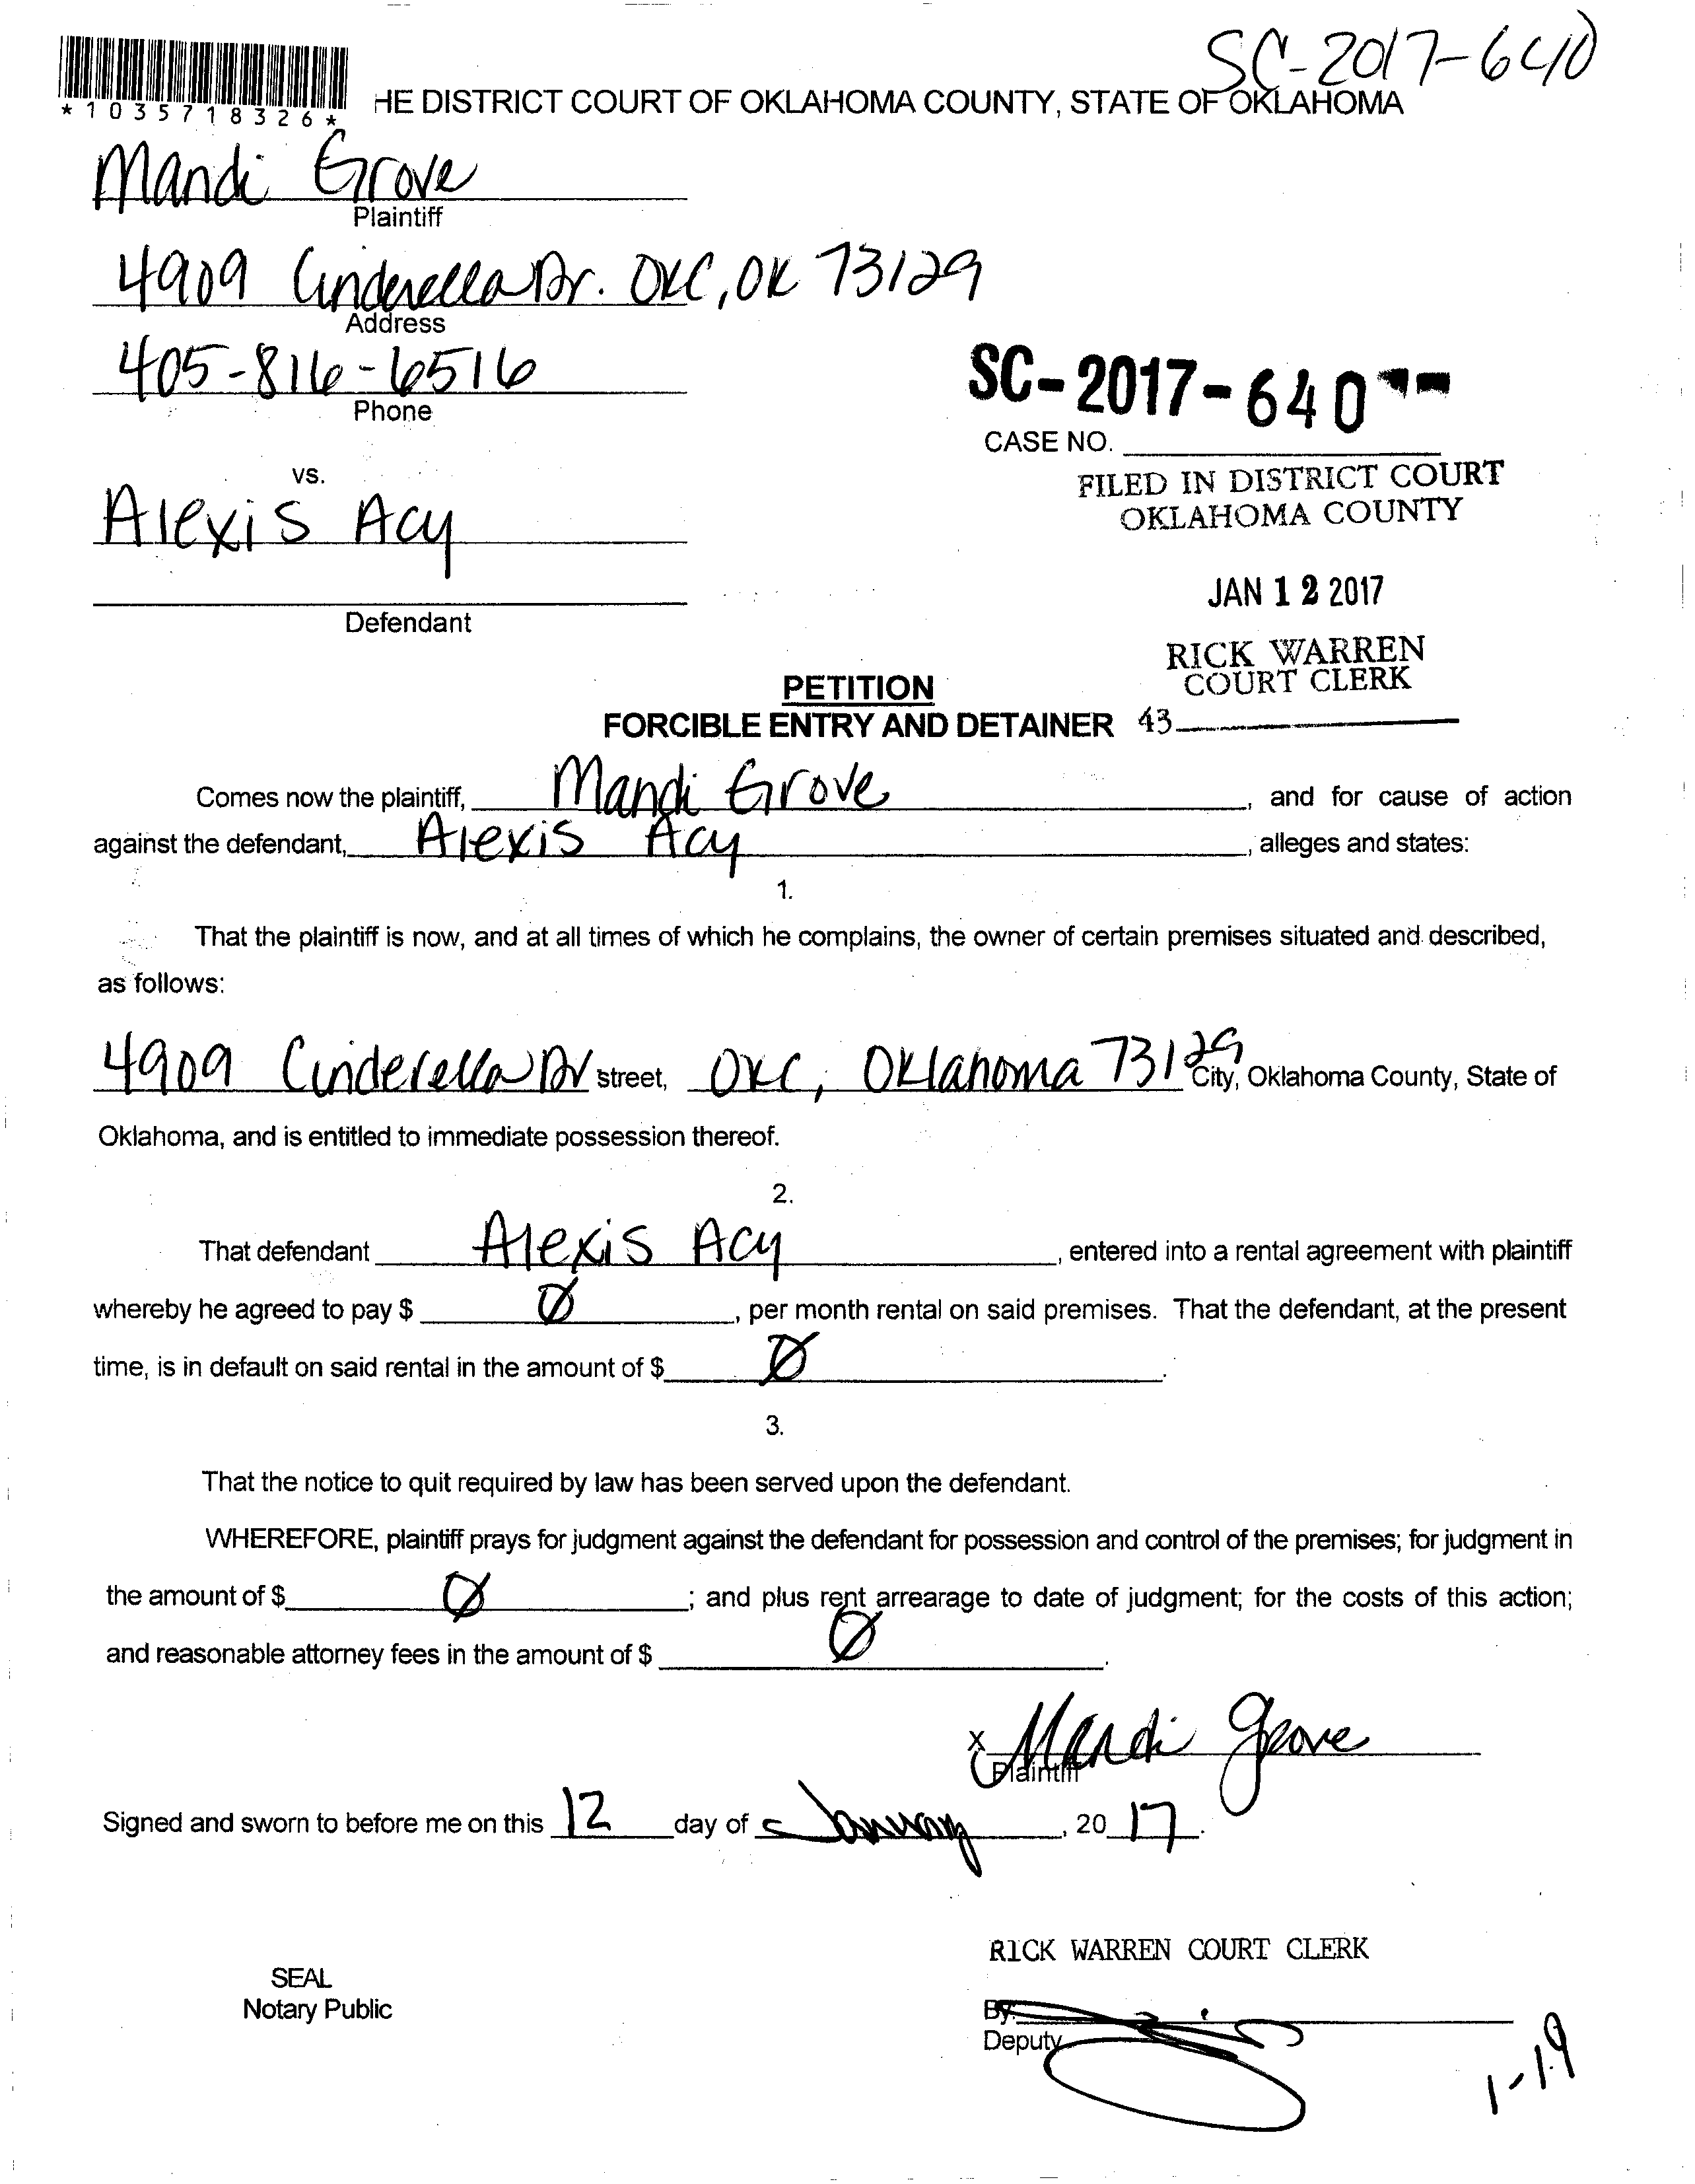 SC-2017-640
*1035718326*
HE DISTRICT COURT OF OKLAHOMA COUNTY, STATE OF OKLAHOMA
Mandi Grove
Plaintiff
4909 Cinderella Dr. OKC, OK 73129
Address
405-816-6516
Phone
SC-2017-640
CASE NO.
vs.
FILED IN DISTRICT COURT
OKLAHOMA COUNTY
Alexis Acy
JAN 12 2017
Defendant
RICK WARREN
COURT CLERK
PETITION
FORCIBLE ENTRY AND DETAINER 43
Comes now the plaintiff, Mandi Grove, and for cause of action
against the defendant, Alexis Acy, alleges and states:
1.
That the plaintiff is now, and at all times of which he complains, the owner of certain premises situated and described,
as follows:
4909 Cinderella Dr street, OKC, Oklahoma 73129 City, Oklahoma County, State of
Oklahoma, and is entitled to immediate possession thereof.
2.
That defendant Alexis Acy, entered into a rental agreement with plaintiff
whereby he agreed to pay $ Ø, per month rental on said premises. That the defendant, at the present
time, is in default on said rental in the amount of $ Ø.
3.
That the notice to quit required by law has been served upon the defendant.
WHEREFORE, plaintiff prays for judgment against the defendant for possession and control of the premises; for judgment in
the amount of $ Ø; and plus rent arrearage to date of judgment; for the costs of this action;
and reasonable attorney fees in the amount of $ Ø.
x Mandi Grove
Plaintiff
Signed and sworn to before me on this 12 day of January, 20 17.
RICK WARREN COURT CLERK
SEAL
Notary Public
By:
Deputy
1-19